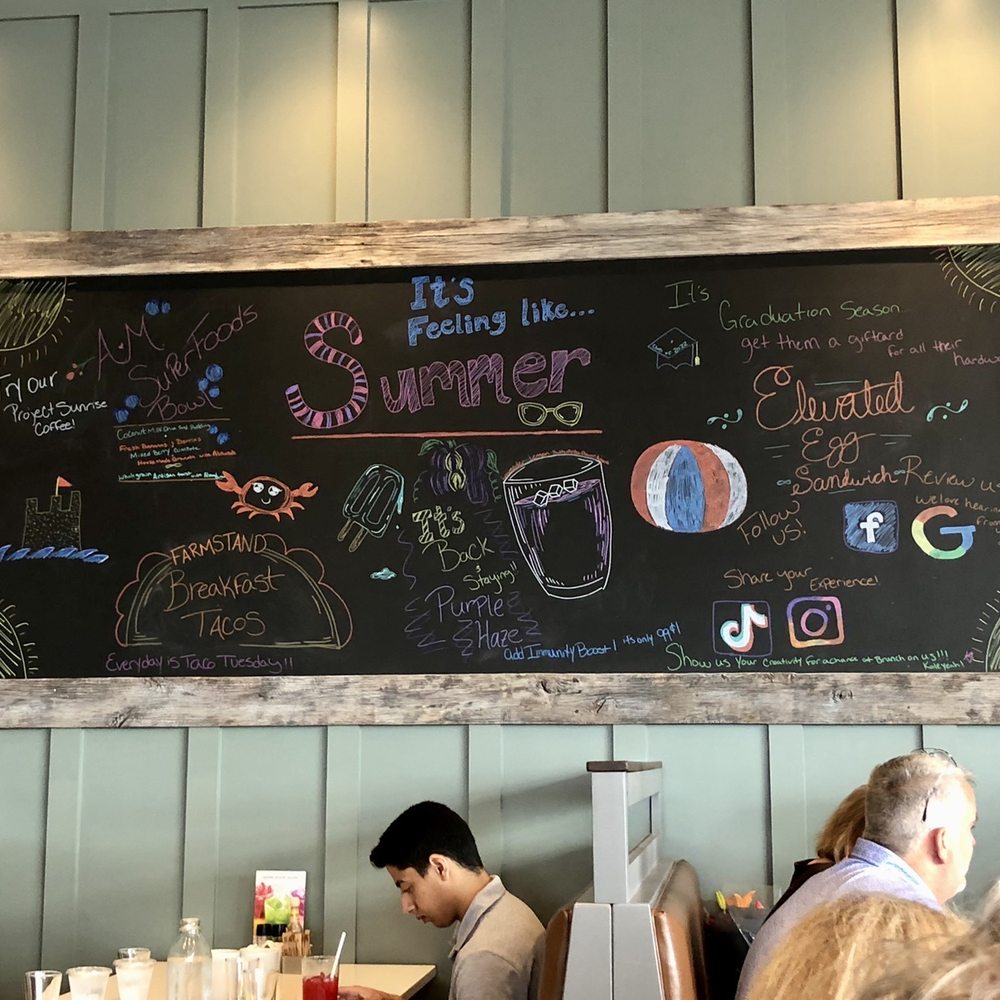 It's
Feeling like...
Summer
Try our
Project Sunrise
Coffee!
AM
SuperFoods
Bowl
Coconut Milk Chia Seed Pudding
Fresh Bananas & Berries
Mixed Berry Compote
Housemade Granola with Almonds
Whole grain Artisan toast with Almond
FARMSTAND
Breakfast
TACOS
Everyday is Taco Tuesday!!
It's
Back
&
Staying!!
Purple
Haze
add Immunity Boost! it's only 99¢!
It's
Graduation Season
get them a giftcard
for all their
hardwo
Elevated
Egg
Sandwich
Follow
us!
Review us
we love hearin
from
f
G
Share your
Experience!
Show us your creativity for a chance at Brunch on us!!!
Kale yeah!